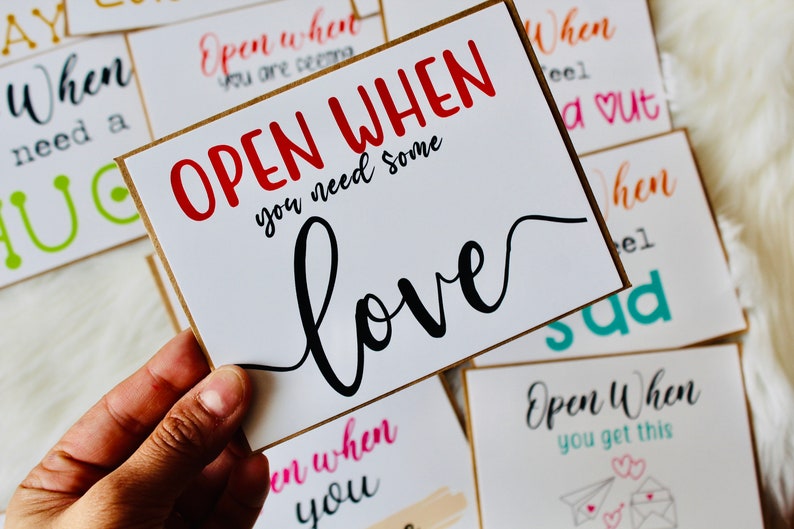 Open when
you are feeling
When
need a
HUG
OPEN WHEN
you need some
love
When
feel
out
When
feel
sad
Open When
you get this
open when
you